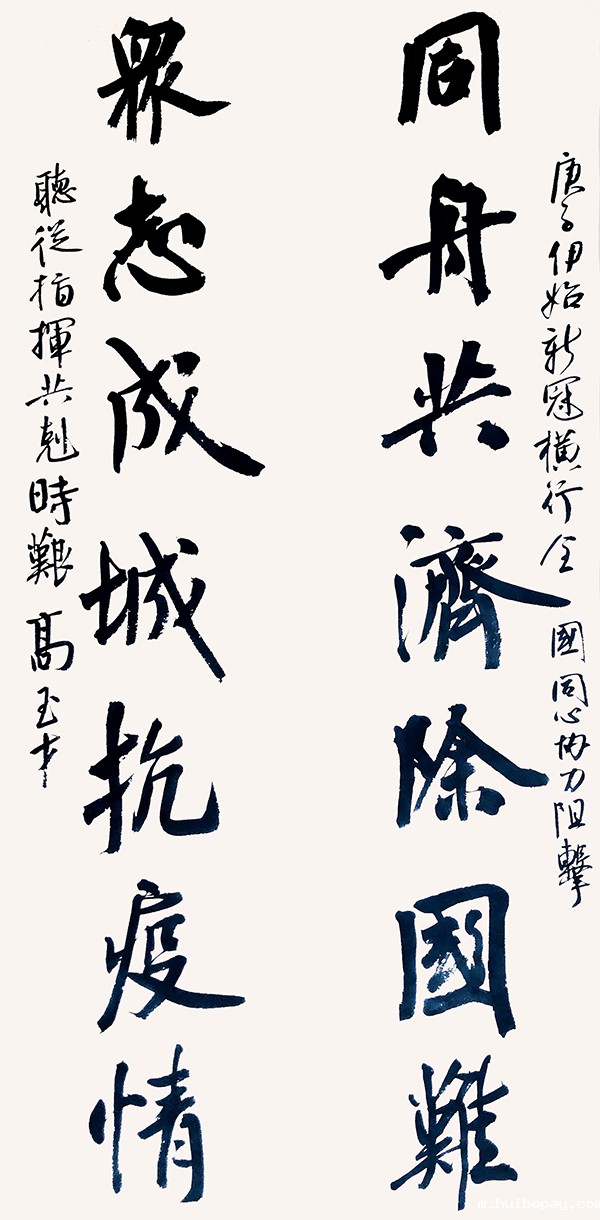 庚子伊始新冠橫行全國同心协力阻擊
同舟共濟除國難
眾志成城抗疫情
聽從指揮共剋時艱高玉才
m.huibopay.com